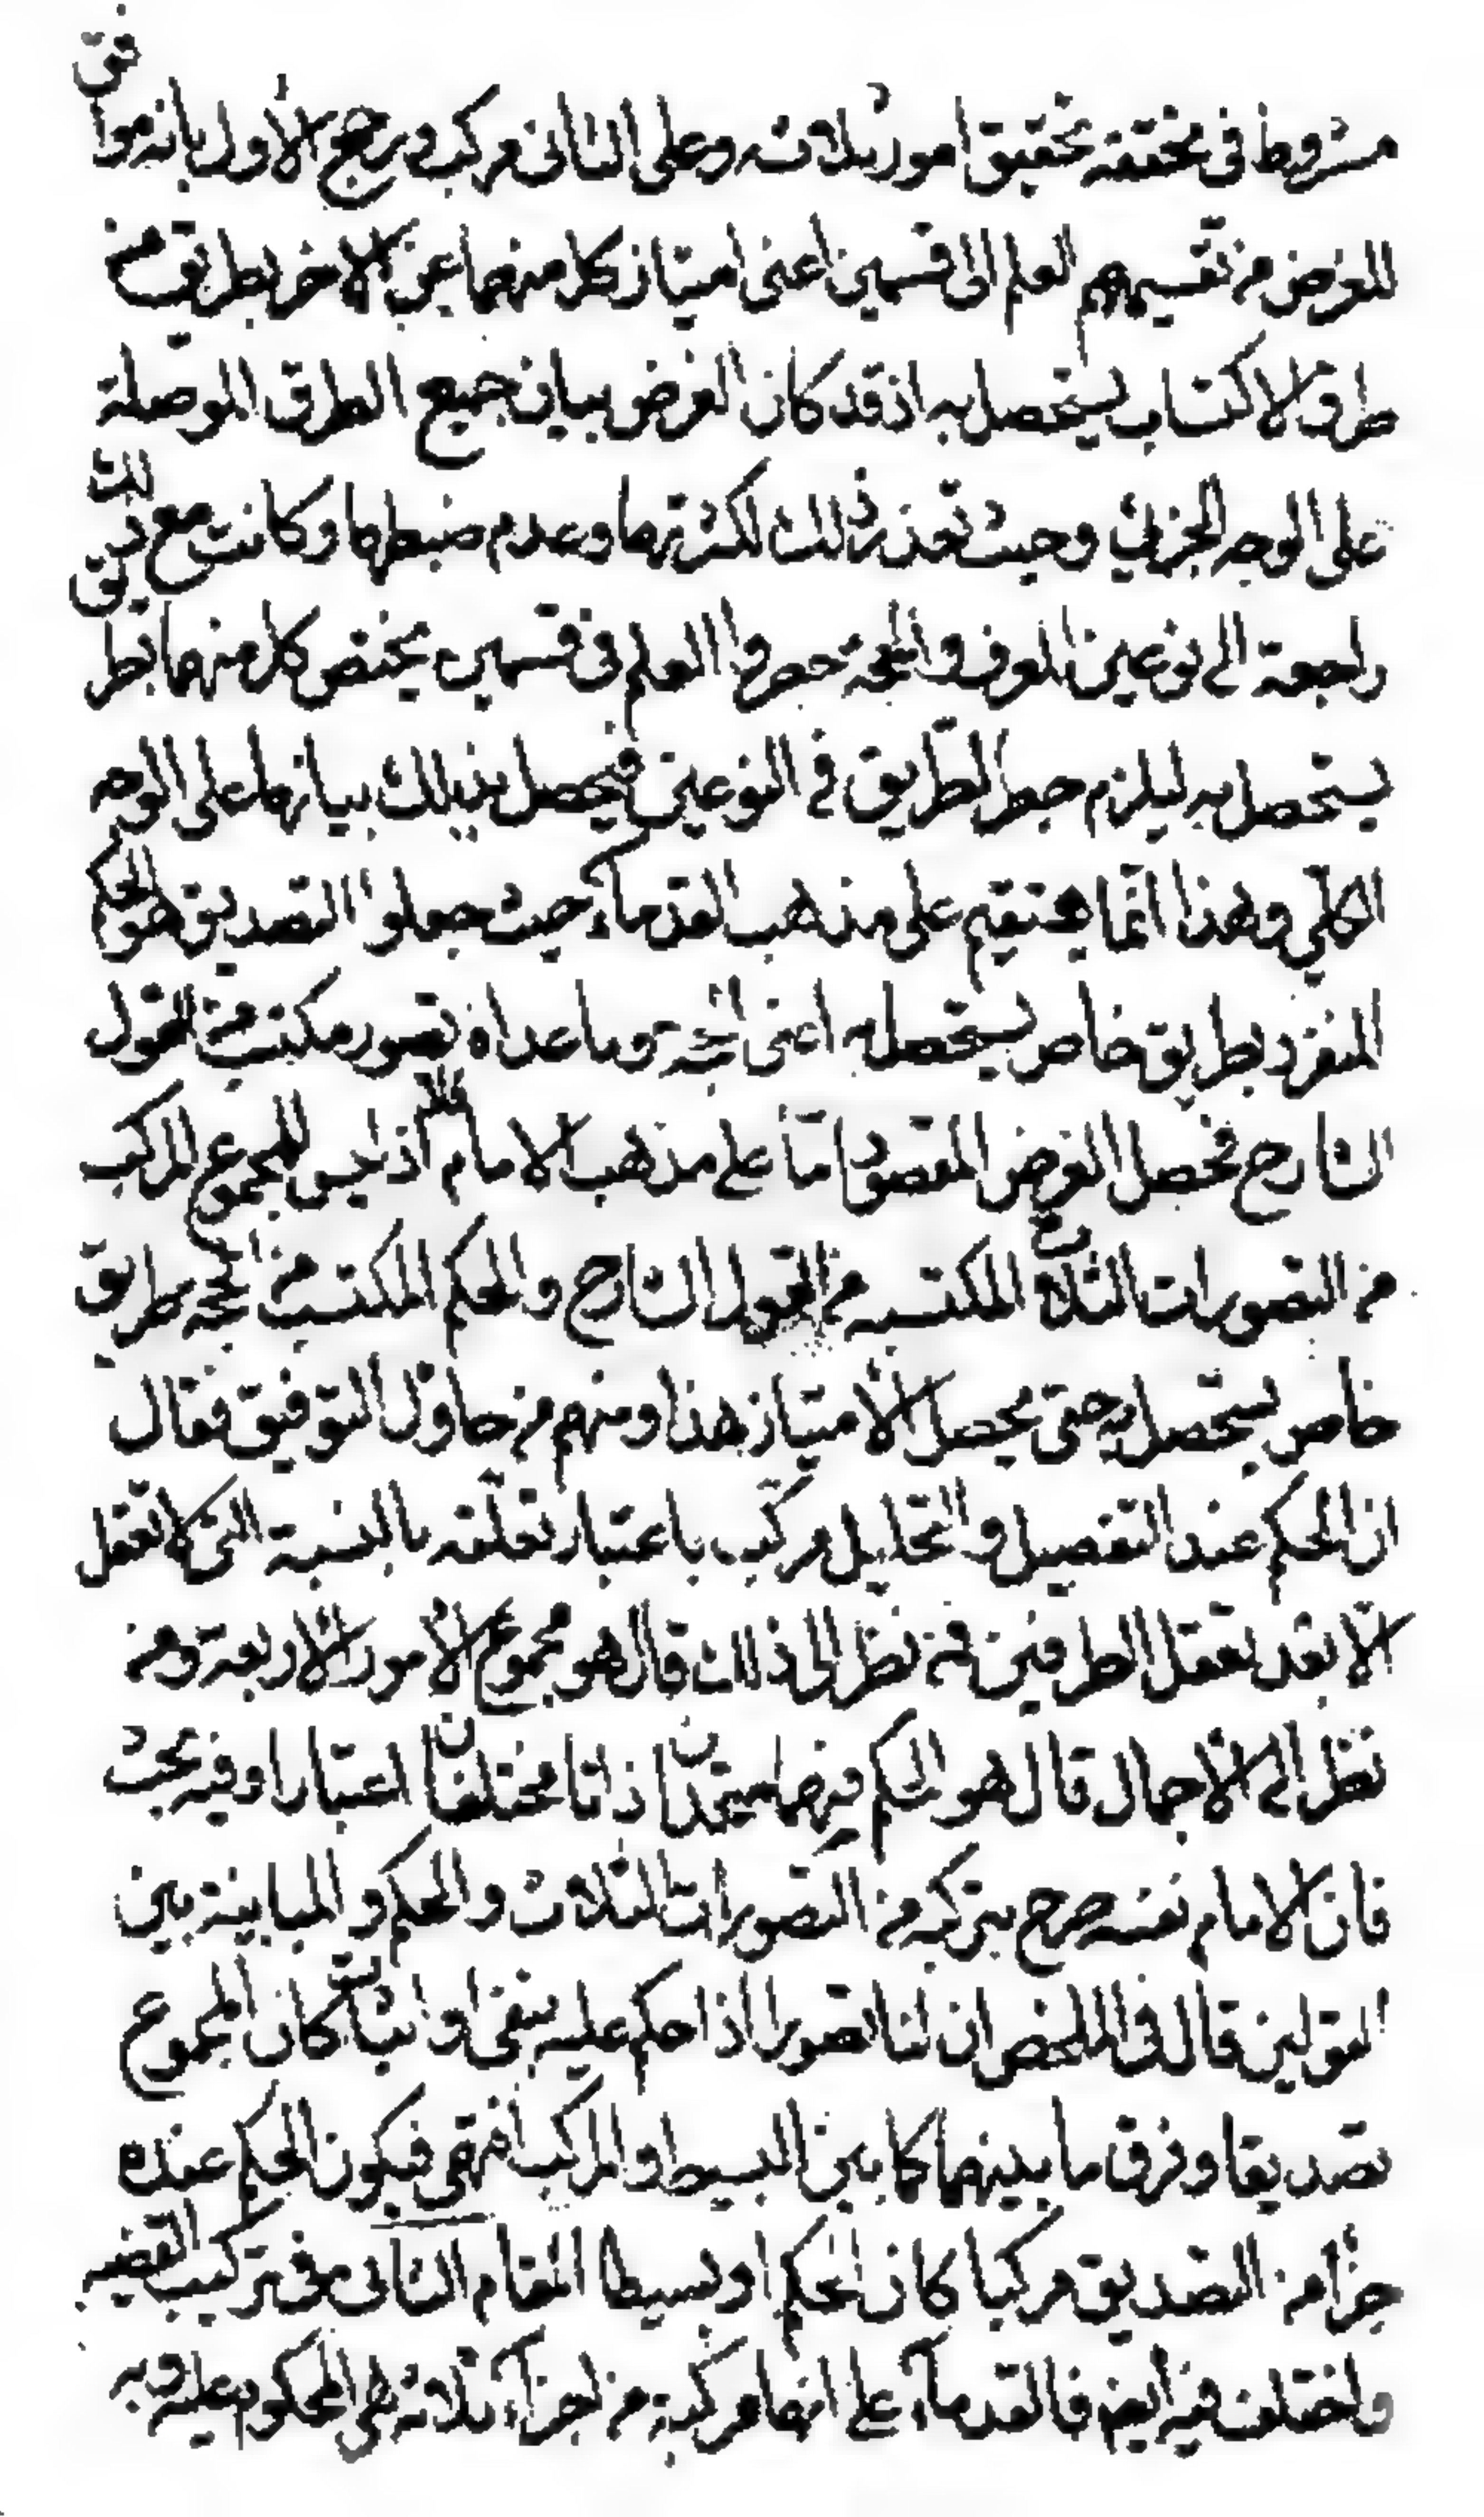 مشروط في تحققه تحقيق امور ثلاثة وعلى الثاني مركب ورجح الاول بانه موافق
للغرض من تقسيمهم العلم الى قسمين اعنى امتياز كل منهما عن الاخر بطريق من
طرق الاكتساب يستحصل به اذ قد كان الغرض بيان جميع الطرق الموصلة
على الوجه الجزئي وحيث تعذر ذلك لكثرتها وعدم ضبطها وكانت مع ذلك
راجعة الى نوعين المعرف والحجة حصروا العلم في قسمين يختص كل منهما بطريق
يستحصل به ليلزم حصر الطريق في النوعين فيحصل بذلك بيانهما على الوجه
الكلي وهذا انما يستقيم على مذهب القدماء حيث جعلوا التصديق هو الحكم
المنفرد بطريق خاص يستحصل به اعنى الحجة وما عداه تصور مكتسب من القول
الشارح فحصل الغرض المقصود اما على مذهب الامام فلا اذ ليس للمجموع المركب
من التصورات الثلاثة المكتسبه من القول الشارح والحكم المكتسب من الحجه طريق
خاص يستحصل به حتى يحصل الامتياز هذا ومنهم من حاول التوفيق فقال
ان الحكم عند التفصيل والتحليل مركب باعتبار تعلقه بالنسبة التى لا تعقل
الا بعد تعقل الطرفين فمن نظر الى ذلك قال هو مجموع الامور الاربعة ومن
نظر الى الاجمال قال هو الحكم فهما متحدان ذاتا مختلفان اعتبارا وفيه بحث
فان الامام نفسه صرح بتركبه من التصورات الثلاث والحكم والمباينة بين
القولين قال في الملخص ان لنا تصورا اذا حكم عليه بنفى او اثبات كان المجموع
تصديقا وفرق ما بينهما كما بين البسيط والمركب انتهى فيكون الحكم عنده
جزأ من التصديق مركبا كان الحكم او بسيطا المقام الثانى في تركيب القضيه
واختلف فيه ايضا فالقدماء على انها مركبة من اجزاء ثلاثة هي المحكوم عليه وبه